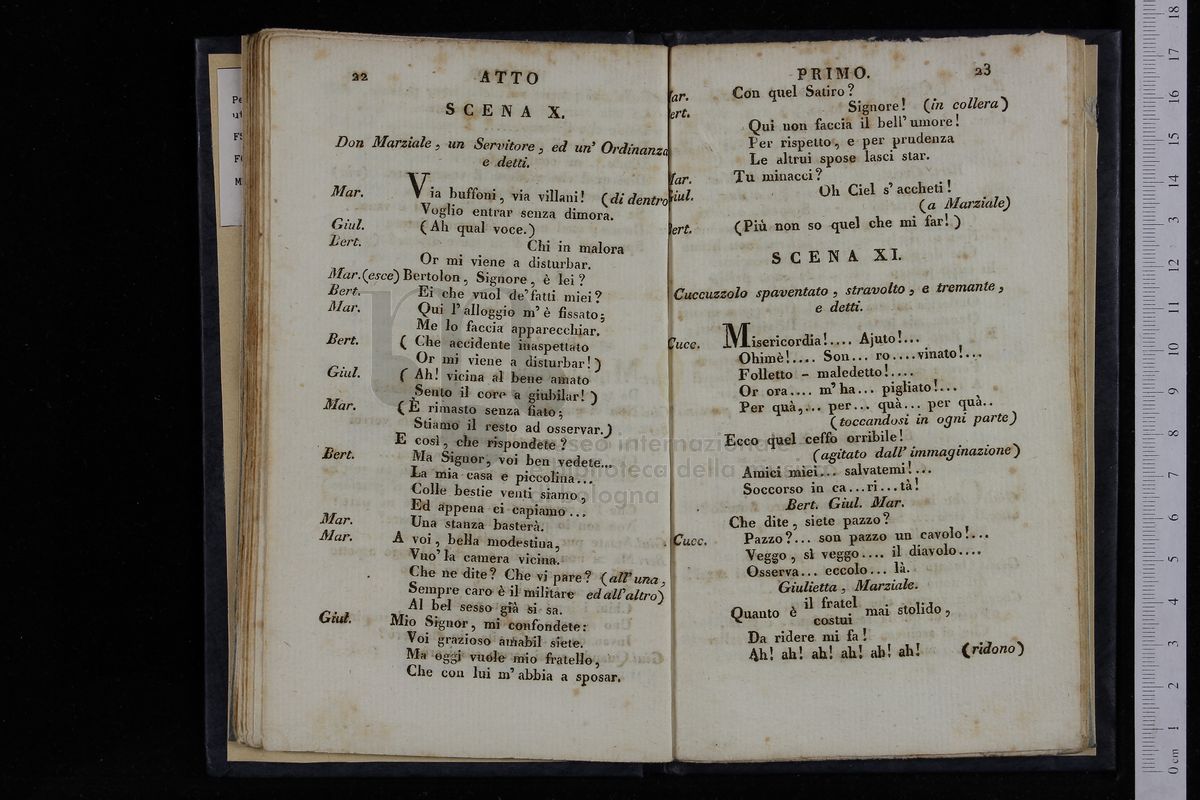 22
ATTO
SCENA X.
Don Marziale, un Servitore, ed un' Ordinanza
e detti.
Mar. Via buffoni, via villani! (di dentro
Voglio entrar senza dimora.
Giul. (Ah qual voce.)
Bert. Chi in malora
Or mi viene a disturbar.
Mar. (esce) Bertolon, Signore, è lei?
Bert. Ei che vuol de' fatti miei?
Mar. Qui l'alloggio m'è fissato;
Me lo faccia apparecchiar.
Bert. ( Che accidente inaspettato
Or mi viene a disturbar!)
Giul. ( Ah! vicina al bene amato
Sento il core a giubilar! )
Mar. (È rimasto senza fiato;
Stiamo il resto ad osservar.)
E così, che rispondete?
Bert. Ma Signor, voi ben vedete...
La mia casa è piccolina...
Colle bestie venti siamo,
Ed appena ci capiamo...
Mar. Una stanza basterà.
Mar. A voi, bella modestina,
Vuo' la camera vicina.
Che ne dite? Che vi pare? (all' una,
Sempre caro è il militare ed all'altro)
Al bel sesso già si sa.
Giul. Mio Signor, mi confondete:
Voi grazioso amabil siete.
Ma oggi vuole mio fratello,
Che con lui m'abbia a sposar.
PRIMO.
23
ar. Con quel Satiro?
ert. Signore! (in collera)
Qui non faccia il bell' umore!
Per rispetto, e per prudenza
Le altrui spose lasci star.
ar. Tu minacci?
iul. Oh Ciel s'accheti!
(a Marziale)
ert. (Più non so quel che mi far!)
SCENA XI.
Cuccuzzolo spaventato, stravolto, e tremante,
e detti.
Cucc. Misericordia!.... Ajuto!...
Ohimè!.... Son... ro....vinato!...
Folletto - maledetto!....
Or ora.... m'ha... pigliato!...
Per quà,... per... quà... per quà..
(toccandosi in ogni parte)
Ecco quel ceffo orribile!
(agitato dall' immaginazione)
Amici miei... salvatemi!...
Soccorso in ca...ri...tà!
Bert. Giul. Mar.
Che dite, siete pazzo?
Cucc. Pazzo?... son pazzo un cavolo!...
Veggo, sì veggo.... il diavolo....
Osserva... eccolo... là.
Giulietta, Marziale.
Quanto è il fratel mai stolido,
costui
Da ridere mi fa!
Ah! ah! ah! ah! ah! ah! (ridono)
museo internazionale
e biblioteca della musica
di bologna
0 cm 1 2 3 4 5 6 7 8 9 10 11 12 13 14 15 16 17 18